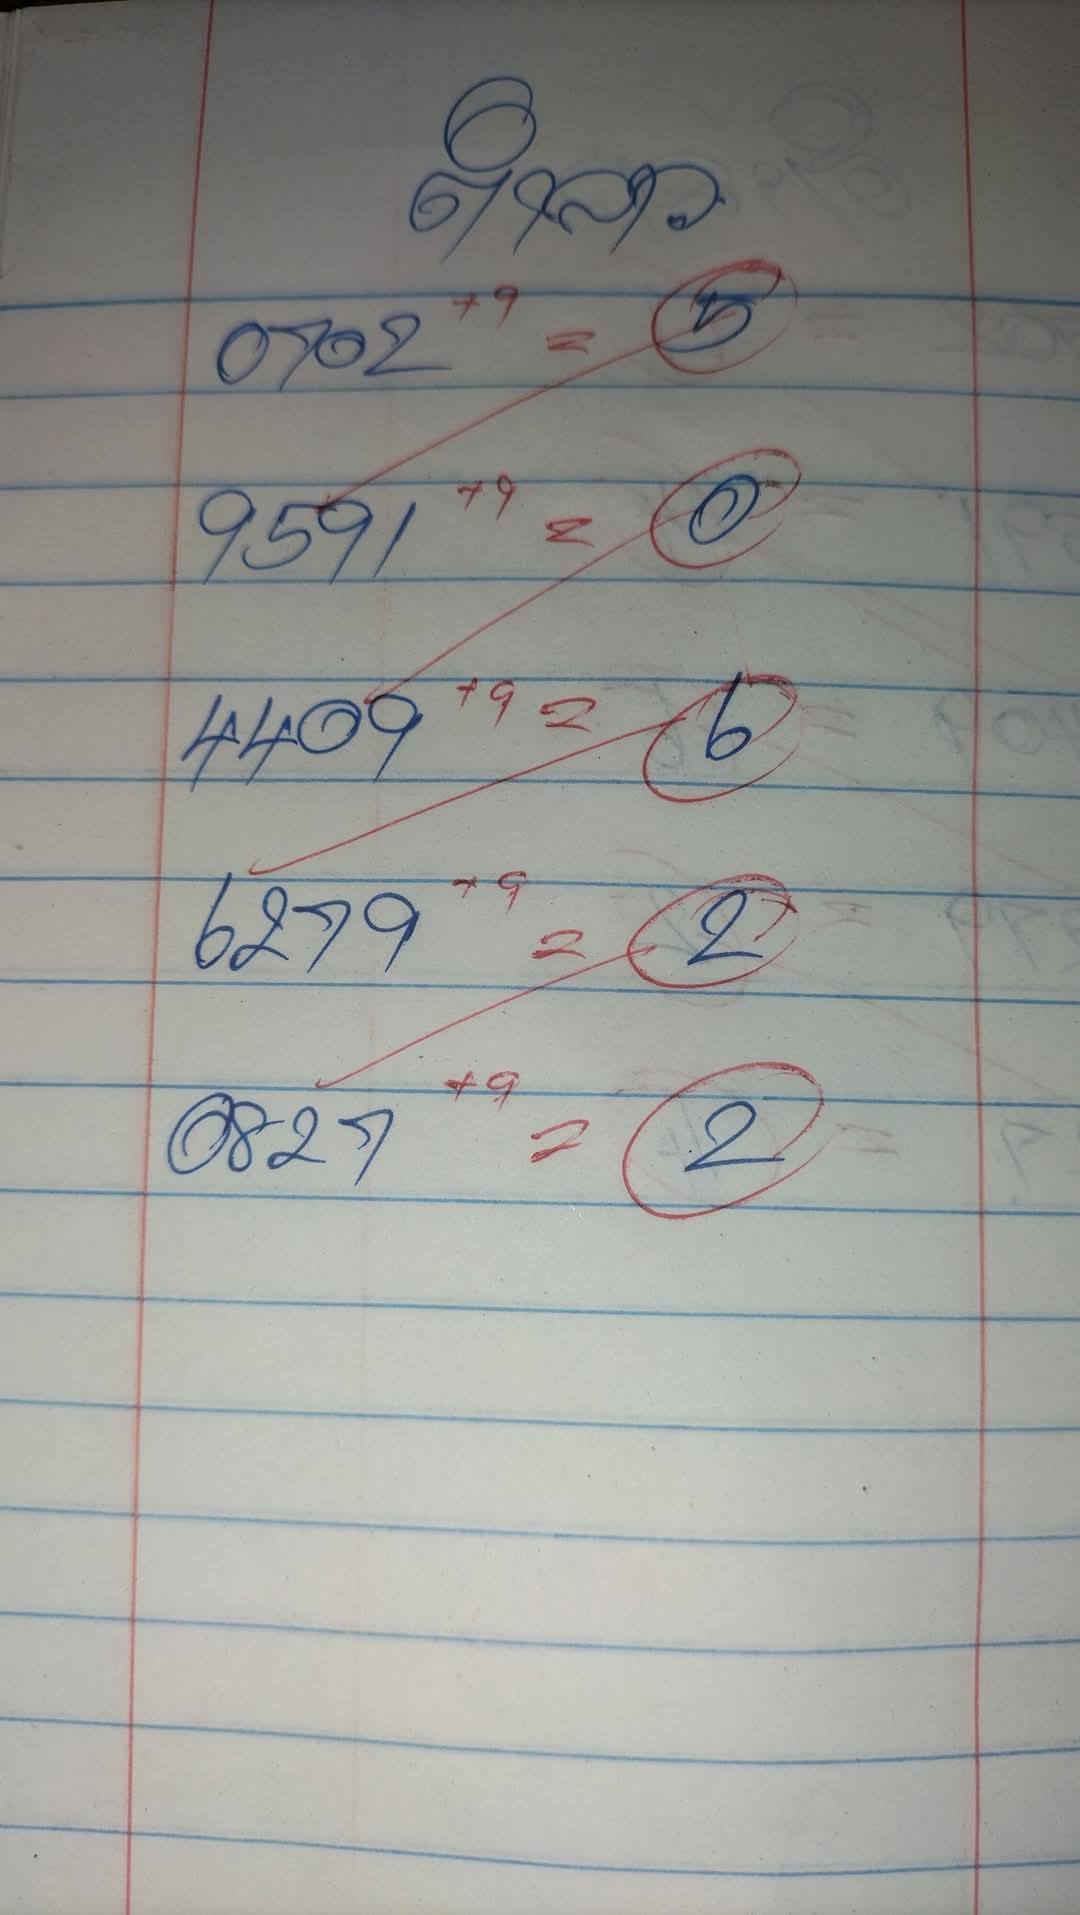 0702 +9 = 5
9591 +9 = 0
4409 +9 = 6
6279 +9 = 2
0827 +9 = 2